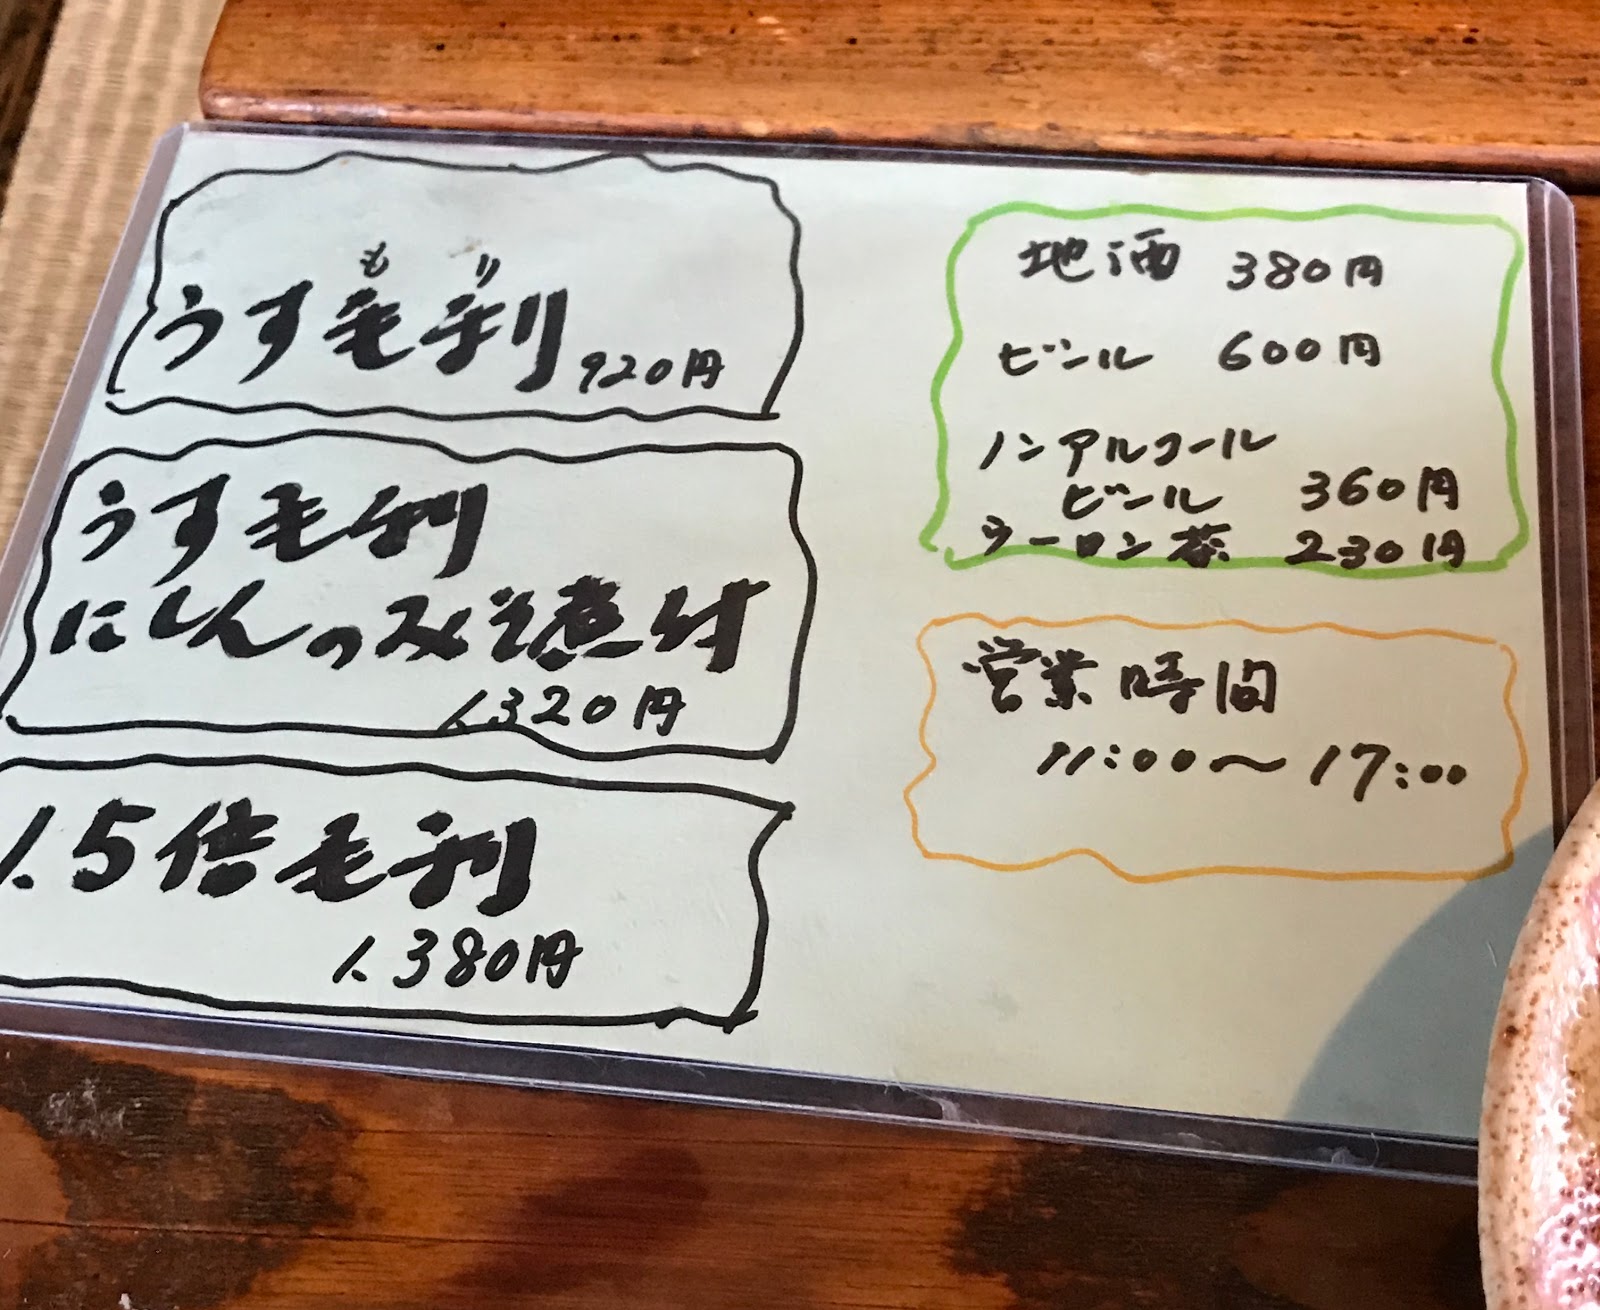 もり
うす毛利 920円
うす毛利
にしんのみそ煮付
1.320円
1.5倍毛利
1.380円
地酒 380円
ビール 600円
ノンアルコール
ビール 360円
ウーロン茶 230円
営業時間
11:00〜17:00